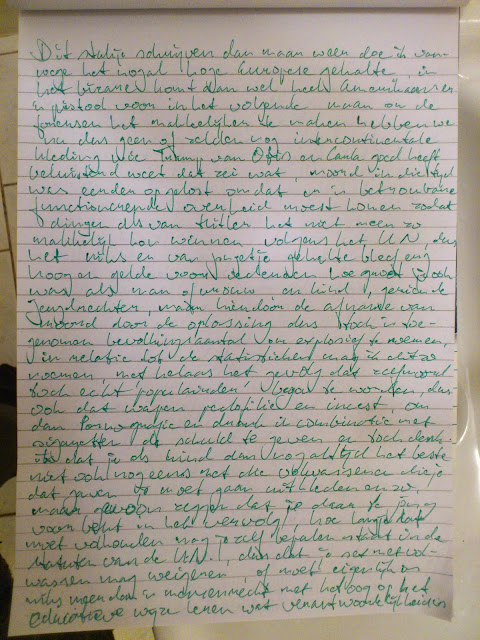 Dit stukje schrijven dan maar weer doe ik van-
wege het nogal hoge Europese gehalte, in
het bizarre komt dan wel heel Amerikaans er
in het volgende maar om de
het makkelijker te maken hebben we
nu dus geen of zelden nog intercontinentale
kleding wie van en Carla goed heeft
beluisterd weet dat zei wat, moord in die tijd
was eerder opgelost omdat er in betrouwbare
functionerende overheid moest komen zodat
dingen als van Hitler het niet meer zo
makkelijk kon winnen volgens het UN, dus
het niks en van gehalte bleef eng
hoog en gelde voor iedereen hoe groot je ook
was als man of vrouw en kind,
Jeugdrechter, waar hierdoor de afname van
moord door de oplossing dus toch is toe-
genomen bevolkingsaantal en explosief te noemen,
in relatie tot de statistieken mag ik dit zo
noemen, met helaas het gevolg dat
toch echt 'populairder' begon te worden, dus
ook dat wapen pedofilie en incest, om
dan Pornografie en drank in combinatie met
sigaretten de schuld te geven er toch denk
ik dat je als kind dan nog altijd het beste
niet ook nog eens met die volwassene die je
dat geven moet gaan uitkleden enzo,
maar gewoon zeggen dat je daar te jong
voor bent in het vervolg, hoe lang je dat
moet volhouden mag je zelf bepalen staat in de
statuten van de U.N., dus dat je sex met vol-
wassenen mag weigeren, of moet eigenlijk
niks meer dan in mensenrecht met het oog op het
educatieve wijze leren wat verantwoordelijkheid is